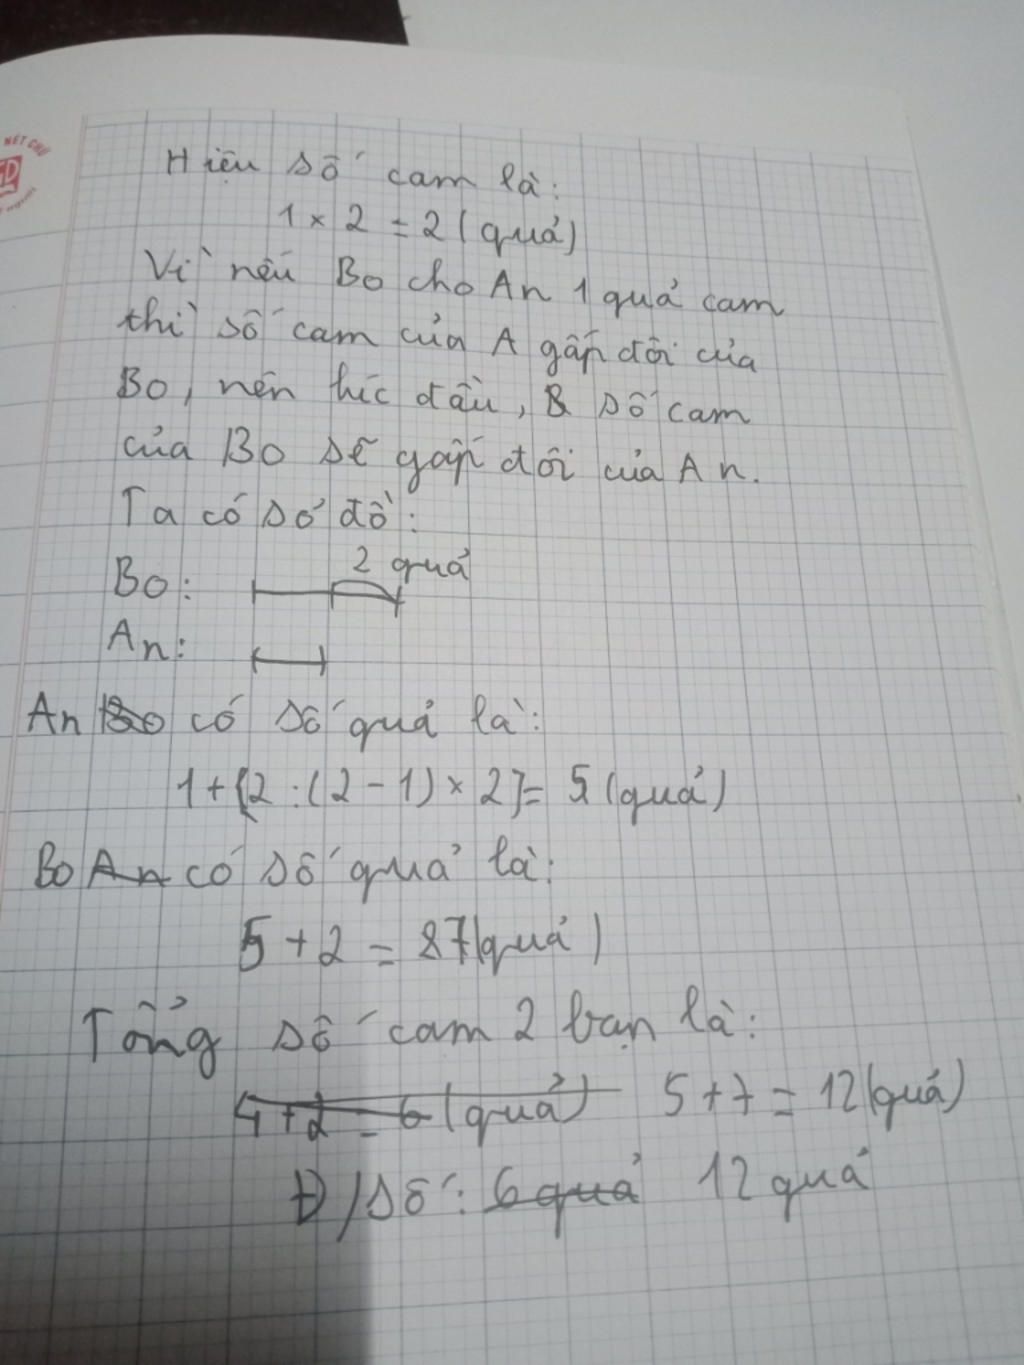 NÉT CHỮ
GD
Hiệu số cam là:
1 × 2 = 2 (quả)
Vì nếu Bo cho An 1 quả cam
thì số cam của A gấp đôi của
Bo, nên lúc đầu, số cam
của Bo sẽ gấp đôi của An.
Ta có sơ đồ:
2 quả
Bo:
An:
An Bo có số quả là:
1 + [2 : (2 - 1) × 2] = 5 (quả)
Bo An có số quả là:
5 + 2 = 7 (quả)
Tổng số cam 2 bạn là:
4 + 2 = 6 (quả) 5 + 7 = 12 (quả)
Đ/số: 6 quả 12 quả